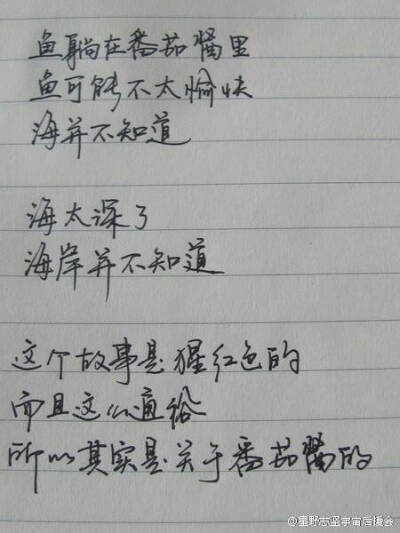 鱼躺在番茄酱里
鱼可能不太愉快
海并不知道
海太深了
海岸并不知道
这个故事是猩红色的
而且这么通俗
所以其实是关于番茄酱的
@星野志望宇宙后援会